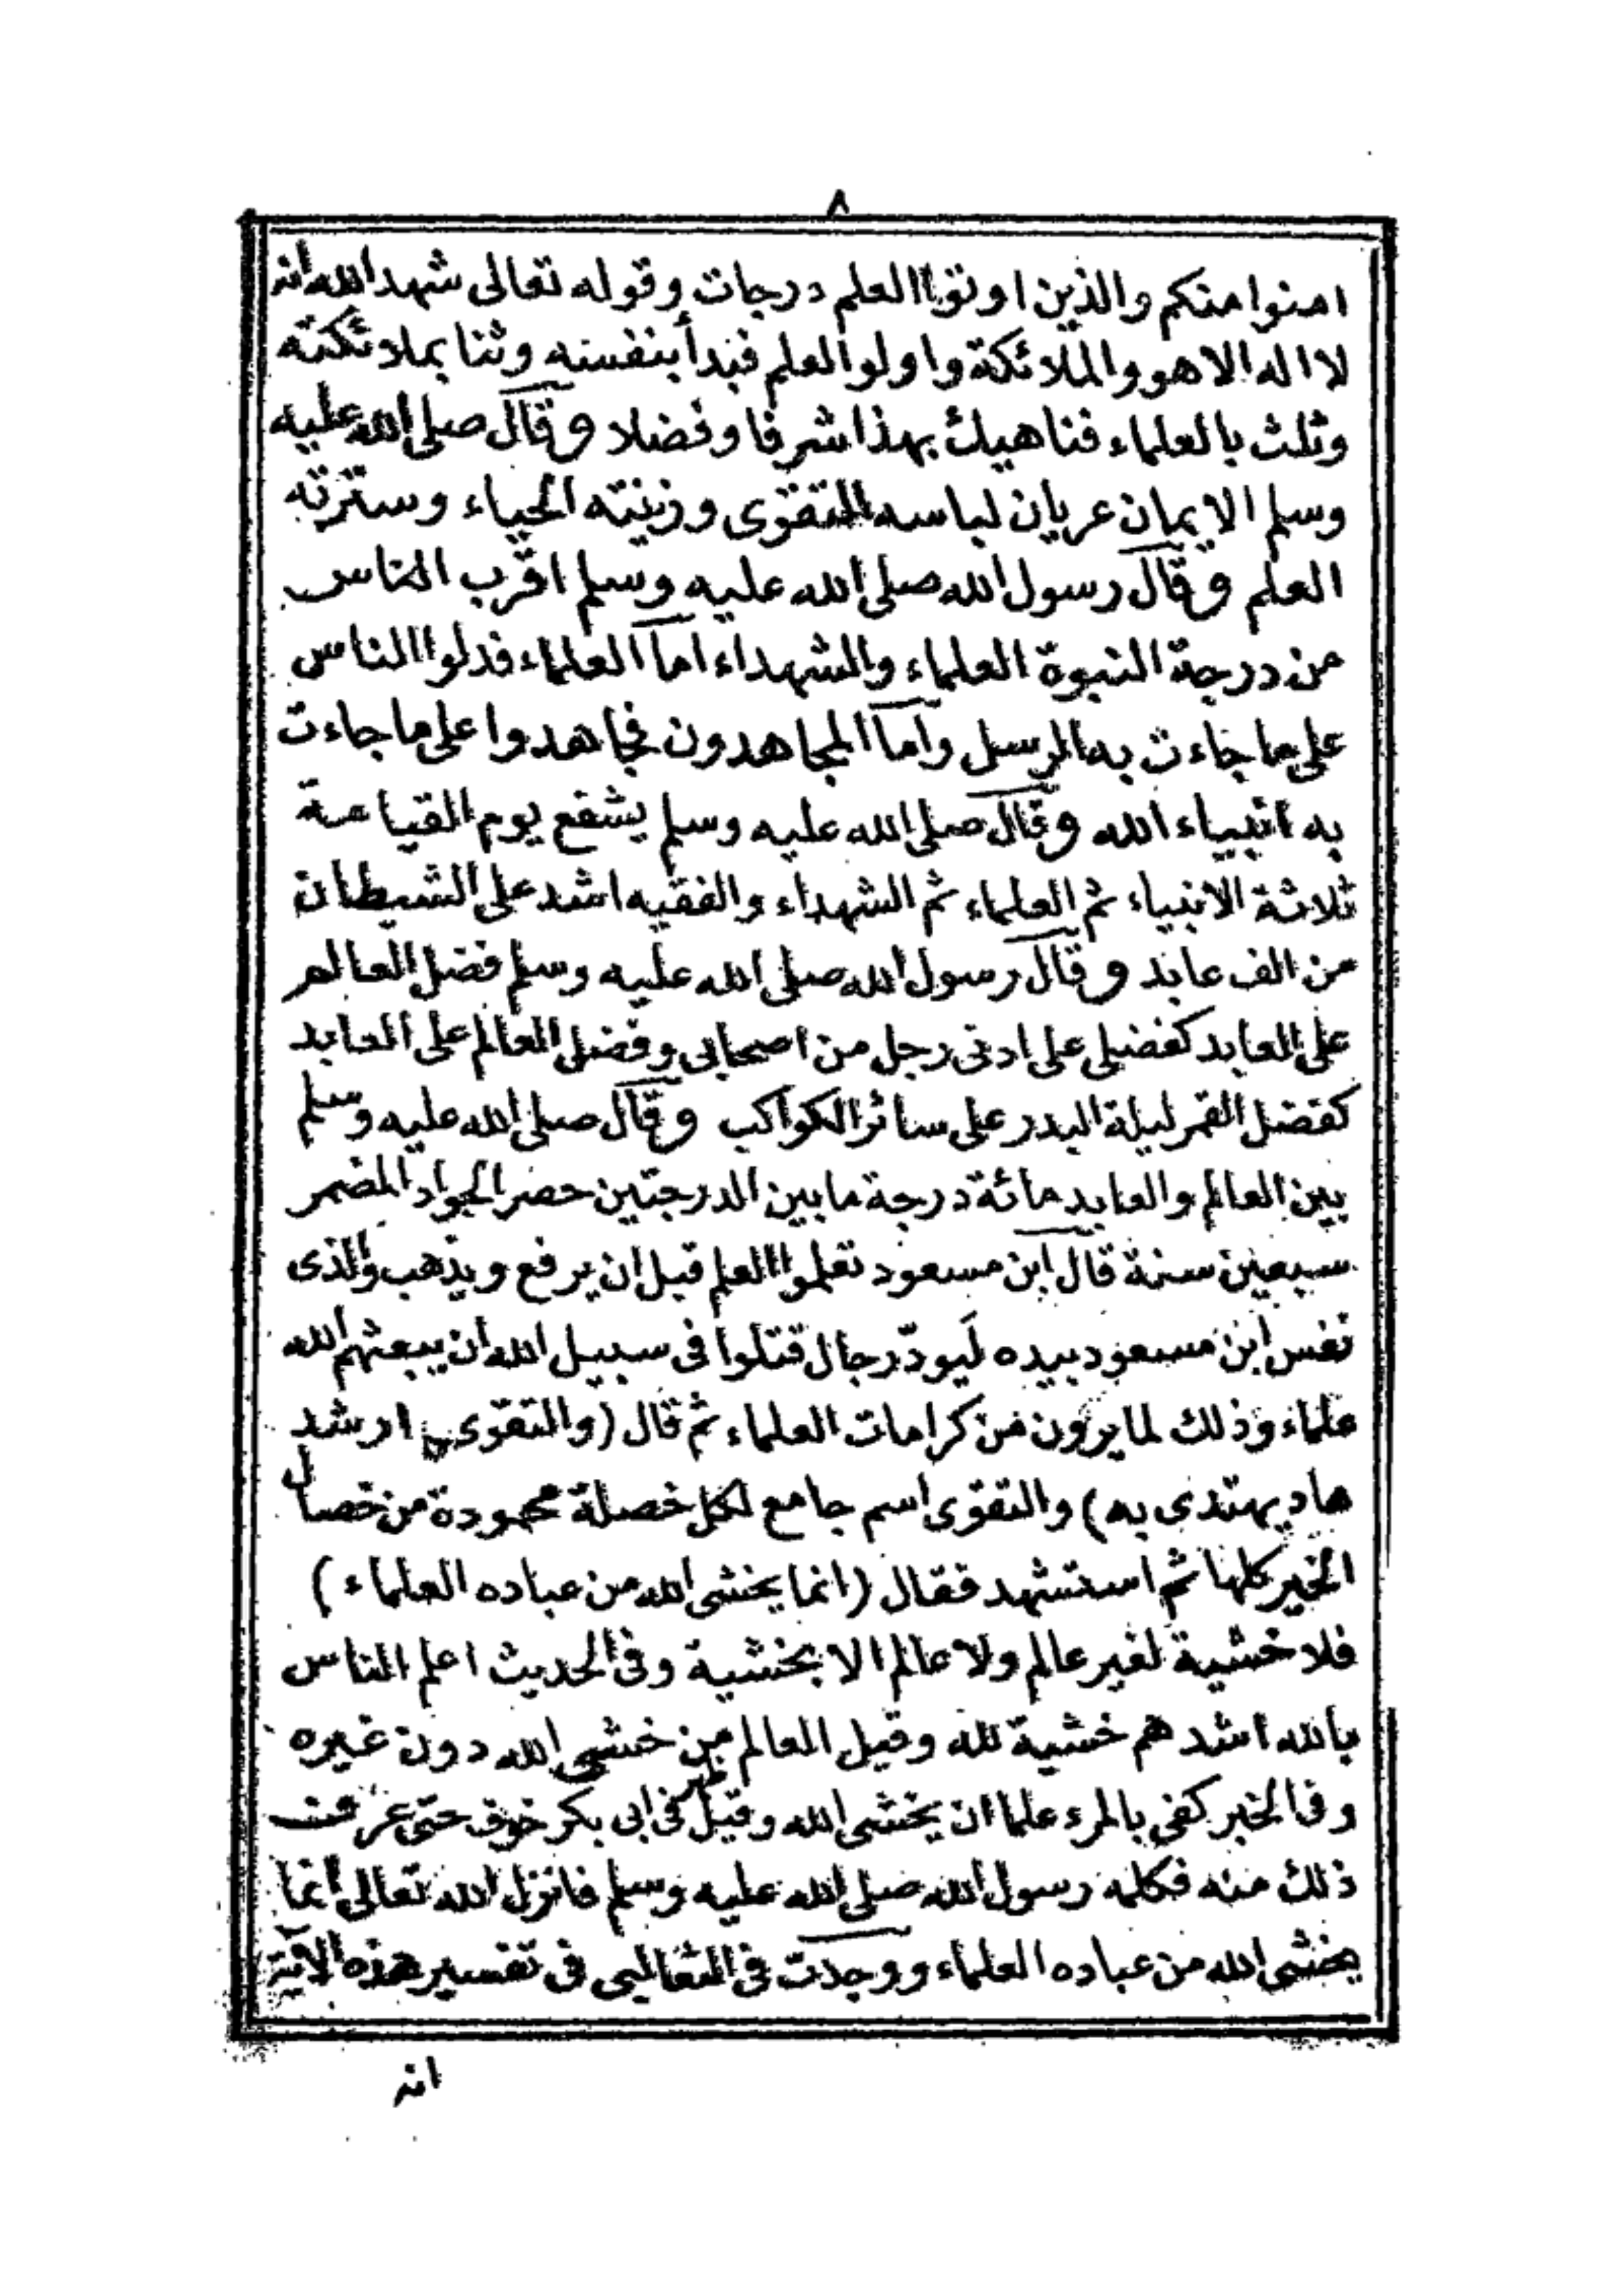 ٨
امنوا منكم والذين اوتوا العلم درجات وقوله تعالى شهد الله انه
لا اله الا هو والملائكة واولوا العلم فبدأ بنفسه وثنا بملائكته
وثلث بالعلماء فناهيك بهذا شرفا وفضلا وقال صلى الله عليه
وسلم الايمان عريان لباسه التقوى وزينته الحياء وسترته
العلم وقال رسول الله صلى الله عليه وسلم اقرب الناس
من درجة النبوة العلماء والشهداء اما العلماء فدلوا الناس
على ما جاءت به الرسل واما المجاهدون فجاهدوا على ما جاءت
به انبياء الله وقال صلى الله عليه وسلم يشفع يوم القيامة
ثلاثة الانبياء ثم العلماء ثم الشهداء والفقيه اشد على الشيطان
من الف عابد وقال رسول الله صلى الله عليه وسلم فضل العالم
على العابد كفضلى على ادنى رجل من اصحابى وفضل العالم على العابد
كفضل القمر ليلة البدر على سائر الكواكب وقال صلى الله عليه وسلم
بين العالم والعابد مائة درجة ما بين الدرجتين حضر الجواد المضمر
سبعين سنة قال ابن مسعود تعلموا العلم قبل ان يرفع ويذهب والذى
نفس ابن مسعود بيده لَيودّ رجال قتلوا فى سبيل الله ان يبعثهم الله
علماء وذلك لما يرون من كرامات العلماء ثم قال (والتقوى ارشد
هاد يهتدى به) والتقوى اسم جامع لكل خصلة محمودة من خصال
الخير كلها ثم استشهد فقال (انما يخشى الله من عباده العلماء)
فلا خشية لغير عالم ولا عالم الا بخشية وفى الحديث اعلم الناس
بالله اشدهم خشية لله وقيل العالم من خشى الله دون غيره
وفى الخبر كفى بالمرء علما ان يخشى الله وقيل ظهر فى ابى بكر خوف حتى عرفت
ذلك منه فكلمه رسول الله صلى الله عليه وسلم فانزل الله تعالى انما
يخشى الله من عباده العلماء ووجدت فى الثعالبى فى تفسير هذه الاية
انه